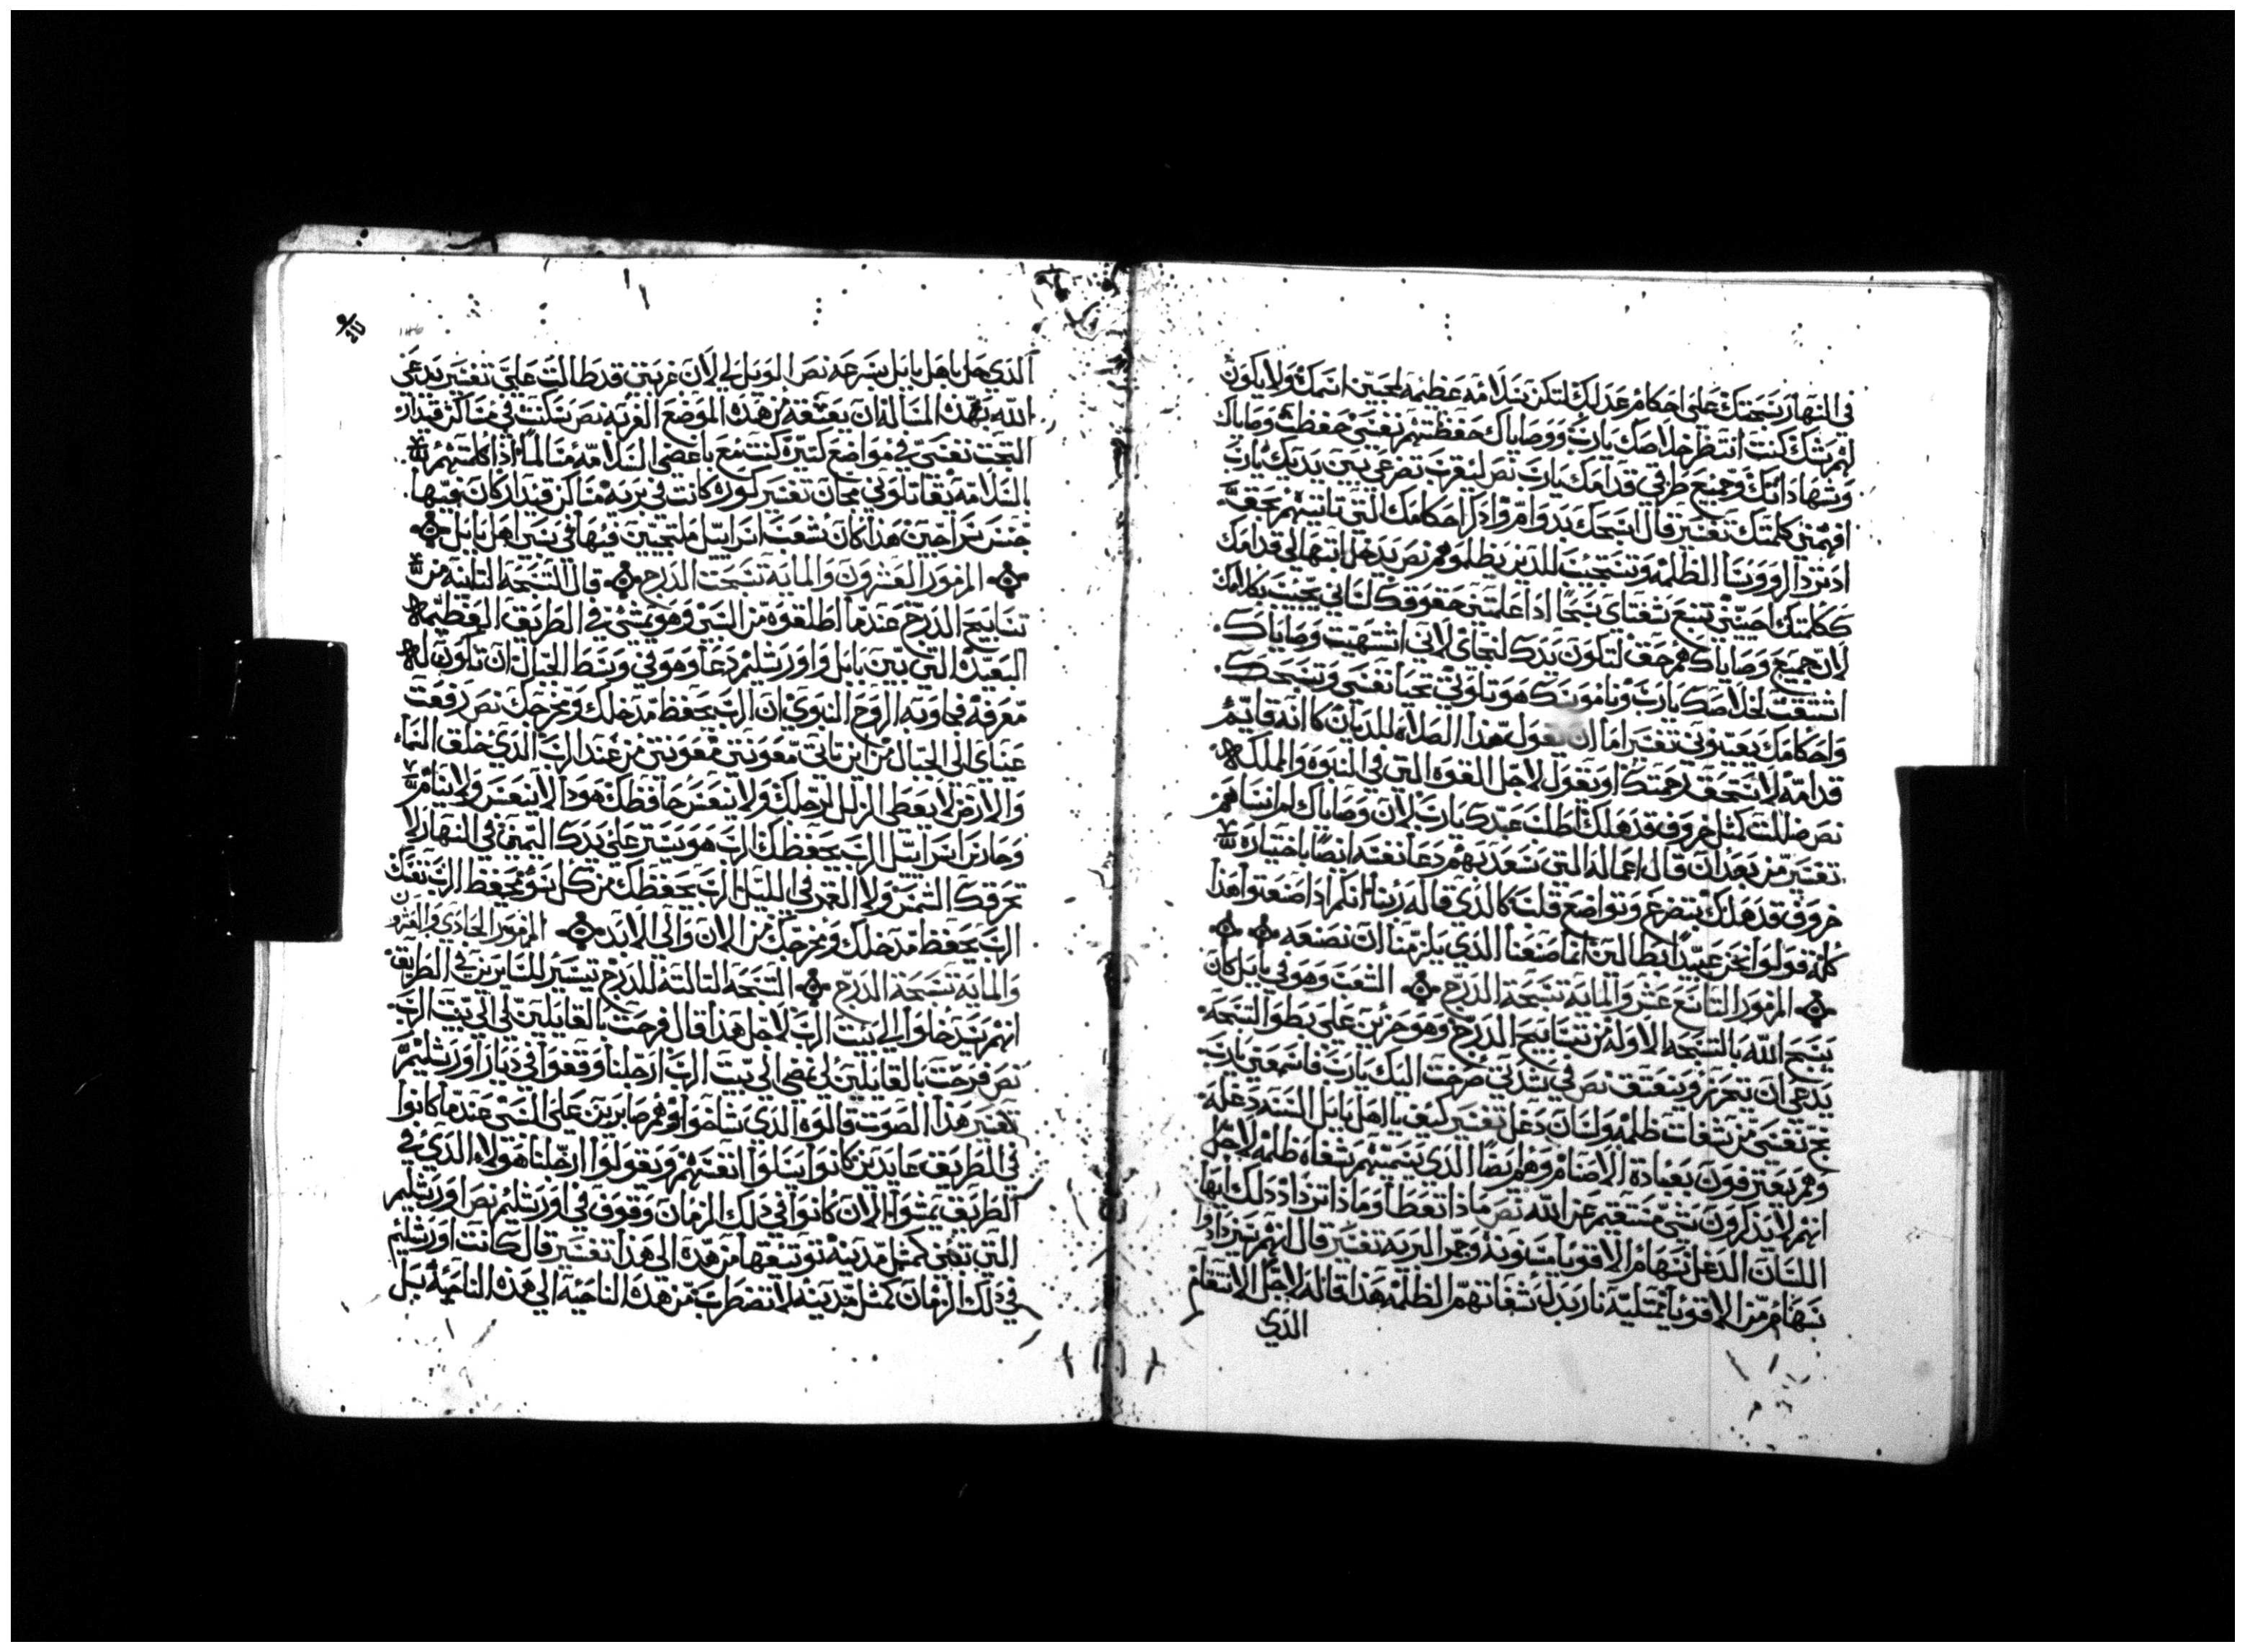 في النهار سبحتك على احكام عدلك لتكن سلامه عظيمه لمحبين اسمك ولا يكون
لهم شك كنت انتظر خلاصك يارب ووصاياك حفظتهم نفسي حفظت وصاياك
وشهاداتك وجميع طرقي قدامك يارب نص ليقرب تضرعي بين يديك يارب
افهمني كلمتك تفسير قال اسبحك بدوام واذكر احكامك التي تاتيهم بحق
قدامك
ككلمتك احييني تنبع شفتاي سبحا اذا علمتني حقوقك لساني يجيب بكلامك
لان جميع وصاياك هم حق لتكون يدك لنجاتي لاني اشتهيت وصاياك
اشتقت لخلاصك يارب وناموسك هو تلاوتي تحيا نفسي وتسبحك
واحكامك يعينوني تفسير اما ان يقول هذا الصلاه للديان كانه قايم
قدامه لا نستحق رحمتك او يقول لاجل القوه التي في النبوه والملك
نص ضللت كمثل خروف قد هلك اطلب عبدك يارب لان وصاياك لم انساهم
تفسير من بعد ان قال اعماله التي سعد بهم دعا نفسه ايضا باختياره
خروف قد هلك بتضرع وتواضع قلب كالذي قاله ربنا انكم اذا صنعتوا هذا
كله قولوا نحن عبيدا بطالين انما صنعنا الذي يلزمنا ان نصنعه
المزمور التاسع عشر والمايه تسبحة الدرج الشعب وهو في بابل كان
يسبح الله بالتسبحه الاوله من تسابيح الدرج وهو حزين على بطو التسبحه
يدعي ان يتحرر ويتعتق نص في شدتي صرخت اليك يارب فاسمعني يارب
نج نفسي من شفات ظلمه ولسان دغل تفسير كيف يا اهل بابل السنه دغله
وهم يعترفون بعبادة الاصنام وهم ايضا الذي يسميهم شفاه ظلمه لاجل
انهم لا يذكرون شي مستقيم عن الله نص ماذا تعطا وماذا تزداد ذلك ايها
اللسان الدغل سهام الاقويا مسنونه وجمر البريه تفسير قال انهم يزدادوا
سهام من الاقويا ممتليه نار بدل شفاتهم الظلمه هذا قاله لاجل الانتقام
الذي
146
الذي حل باهل بابل بسرعه نص الويل لي لان غربتي قد طالت علي تفسير يدعي
الله بهذه المساله ان يعتقه من هذه الموضع الغربه نص سكنت في مساكن قيدار
التجت نفسي في مواضع كتيره كنت مع باغضي السلامه مسالما اذا كلمتهم
بالسلامه يقاتلوني مجان تفسير كوره كانت في بريه مساكن قيدار كان فيها
جنس شراحين هذا كان شعب اسراييل ملتجيين فيها في سبي اهل بابل
المزمور العشرون والمايه تسبحت الدرج قال التسبحه التانيه من
تسابيح الدرج عندما اطلقوه من السبي وهو يمشي في الطريق العظيمه
البعيده التي بين بابل واورشليم دعا وهو في وسط الجبال ان تكون له
معرفه فجاوبه الروح النبوي ان الرب يحفظ مدخلك ومخرجك نص رفعت
عيناي الى الجبال من اين تاتي معونتي معونتي من عند الرب الذي خلق السماء
والارض لا يعطي الزلل لرجلك ولا ينعس حافظك هوذا لا ينعس ولا ينام
وحارس اسراييل الرب يحفظك الرب هو يستر على يدك اليمين في النهار لا
تحرقك الشمس ولا القمر في الليل الرب يحفظك من كل سو يحفظ الرب نفسك
الرب يحفظ مدخلك ومخرجك من الان والى الابد المزمور الحادي والعشرون
والمايه تسبحة الدرج التسبحه التالته للدرج تسير للسايرين في الطريق
انهم يدخلوا الي بيت الرب لاجل هذا قال فرحت بالقايلين لي الي بيت الرب
نص فرحت بالقايلين لي نمضي الي بيت الرب ارجلنا وقفوا في ديار اورشليم
تفسير هذا الصوت قالوه الذي وهم صابرين على السبي عندما كانوا
في الطريق عايدين كانوا يسلوا انفسهم ويقولوا ارجلنا هولاء الذي في
الطريق يمشوا الان كانوا في ذلك الزمان وقوف في اورشليم نص اورشليم
التي تبنى كمثل مدينه من هذه الى هذا تفسير قال كانت اورشليم
في ذلك الزمان كمثل مدينه لا تضطرب من هذه الناحيه الي هذه الناحيه بل